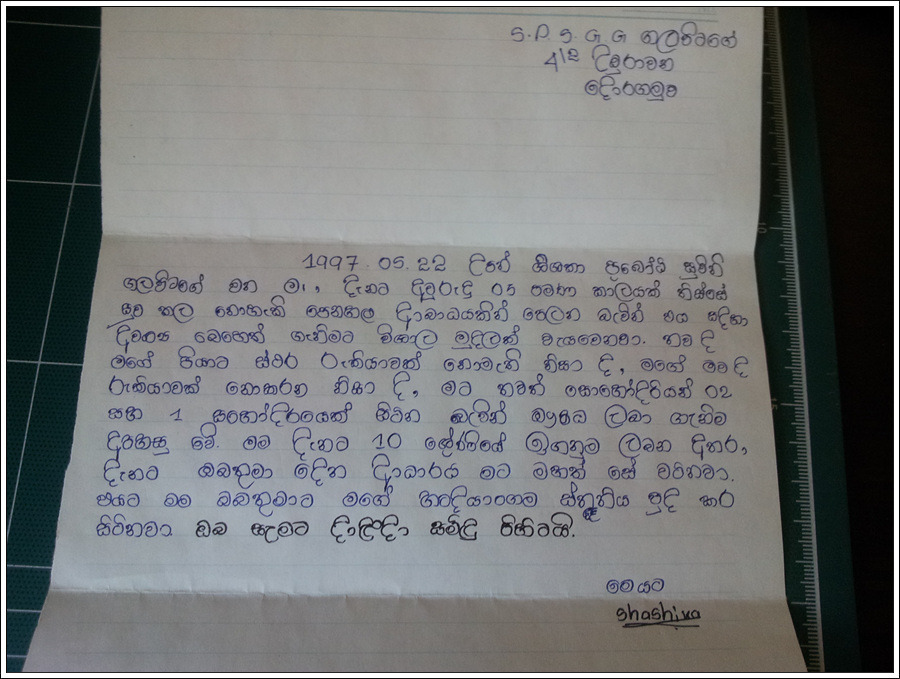 S. P. S. G. G ගුලවිටගේ
4/2 උඹුරාවන
දොරගමුව
1997. 05. 22 උපන් ප්‍රබෝධි සුමිනි
ගුලවිටගේ වන මා, දැනට අවුරුදු 05 පමණ කාලයක් තිස්සේ
සුව කල නොහැකි පෙනහළු ආබාධයකින් පෙලන බැවින් එය සඳහා
අවශ්‍ය බෙහෙත් ගැනීමට විශාල මුදලක් වැයවෙනවා. තව ද
මගේ පියාට ස්ථිර රැකියාවක් නොමැති නිසා ද, මගේ මව ද
රැකියාවක් නොකරන නිසා ද, මට තවත් සොහොදරියන් 02
සහ 1 සහෝදරයෙක් සිටින බැවින් ඖෂධ ලබා ගැනීම
අපහසු වේ. මම දැනට 10 ශ්‍රේණියේ ඉගනුම ලබන අතර,
දැනට ඔබතුමා දෙන ආධාරය මට මහත් සේ වටිනවා.
එයට මම ඔබතුමාට මගේ හෘදයාංගම ස්තූතිය පුද කර
සිටිනවා. ඔබ සැමට සමිඳු පිහිටයි.
මෙයට
shashika